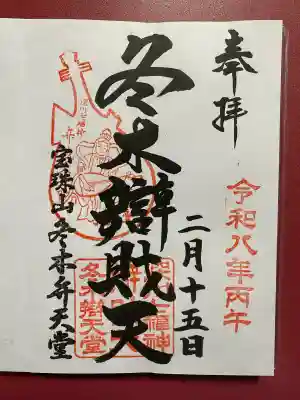 奉拝
令和八年丙午
二月十五日
冬木辯財天
宝珠山冬木弁天堂
冬木辯天堂
七福神